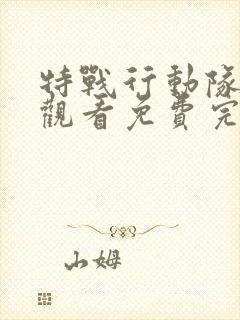 特戰行動隊
觀看免費完
山姆